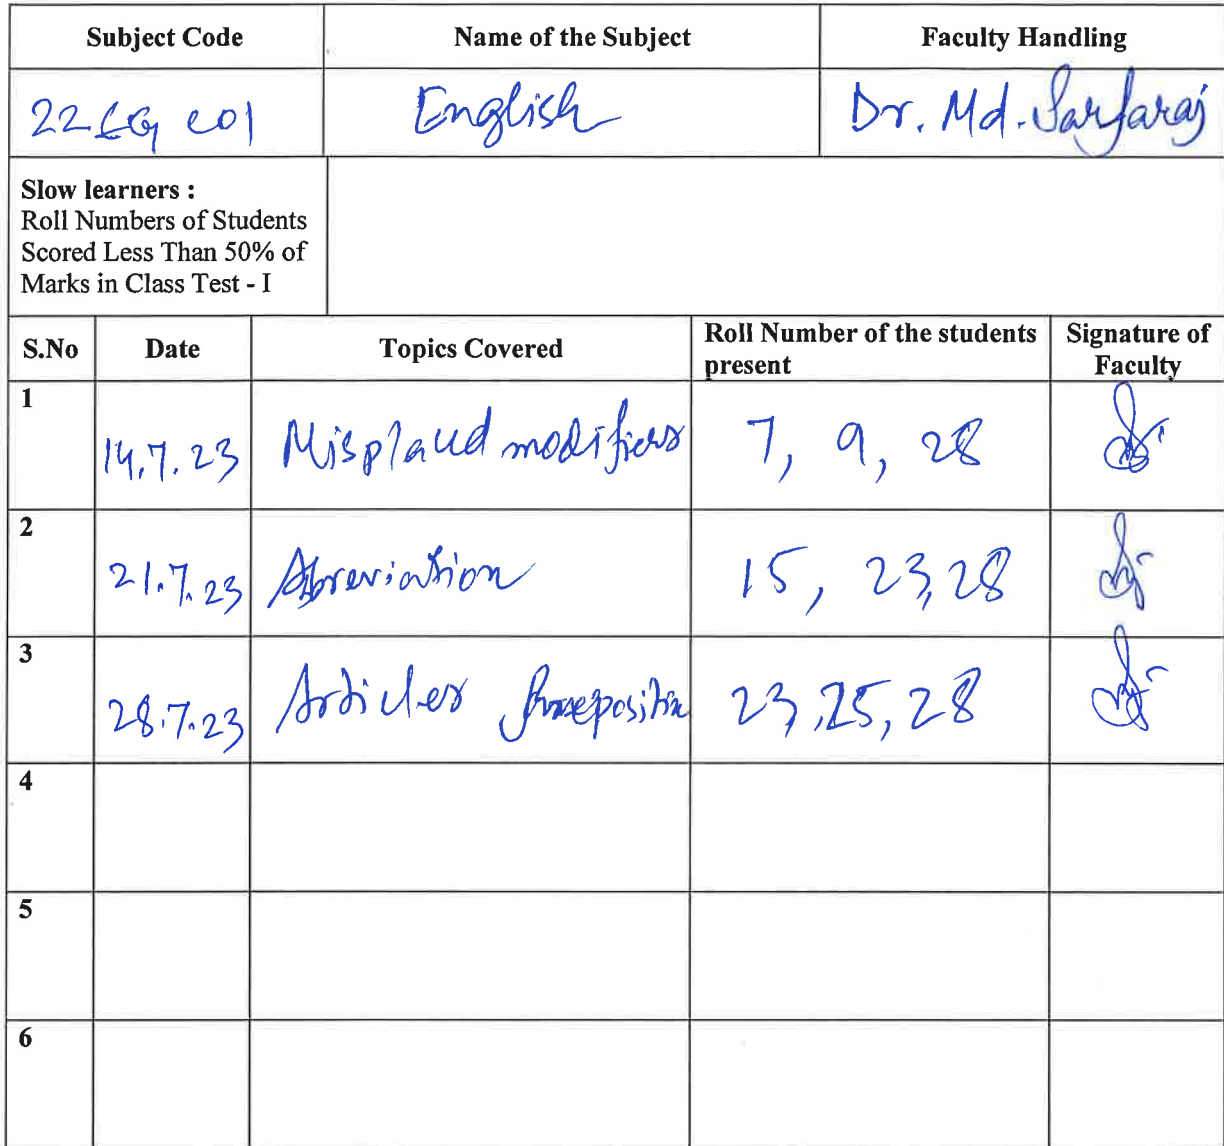 Subject Code Name of the Subject Faculty Handling
22 EG C01 English Dr. Md. Sarfaraj
Slow learners :
Roll Numbers of Students
Scored Less Than 50% of
Marks in Class Test - I
S.No Date Topics Covered Roll Number of the students present Signature of Faculty
1 14.7.23 Misplaced modifiers 7, 9, 28
2 21.7.23 Abreviation 15, 23, 28
3 28.7.23 Articles 23, 25, 28
4
5
6